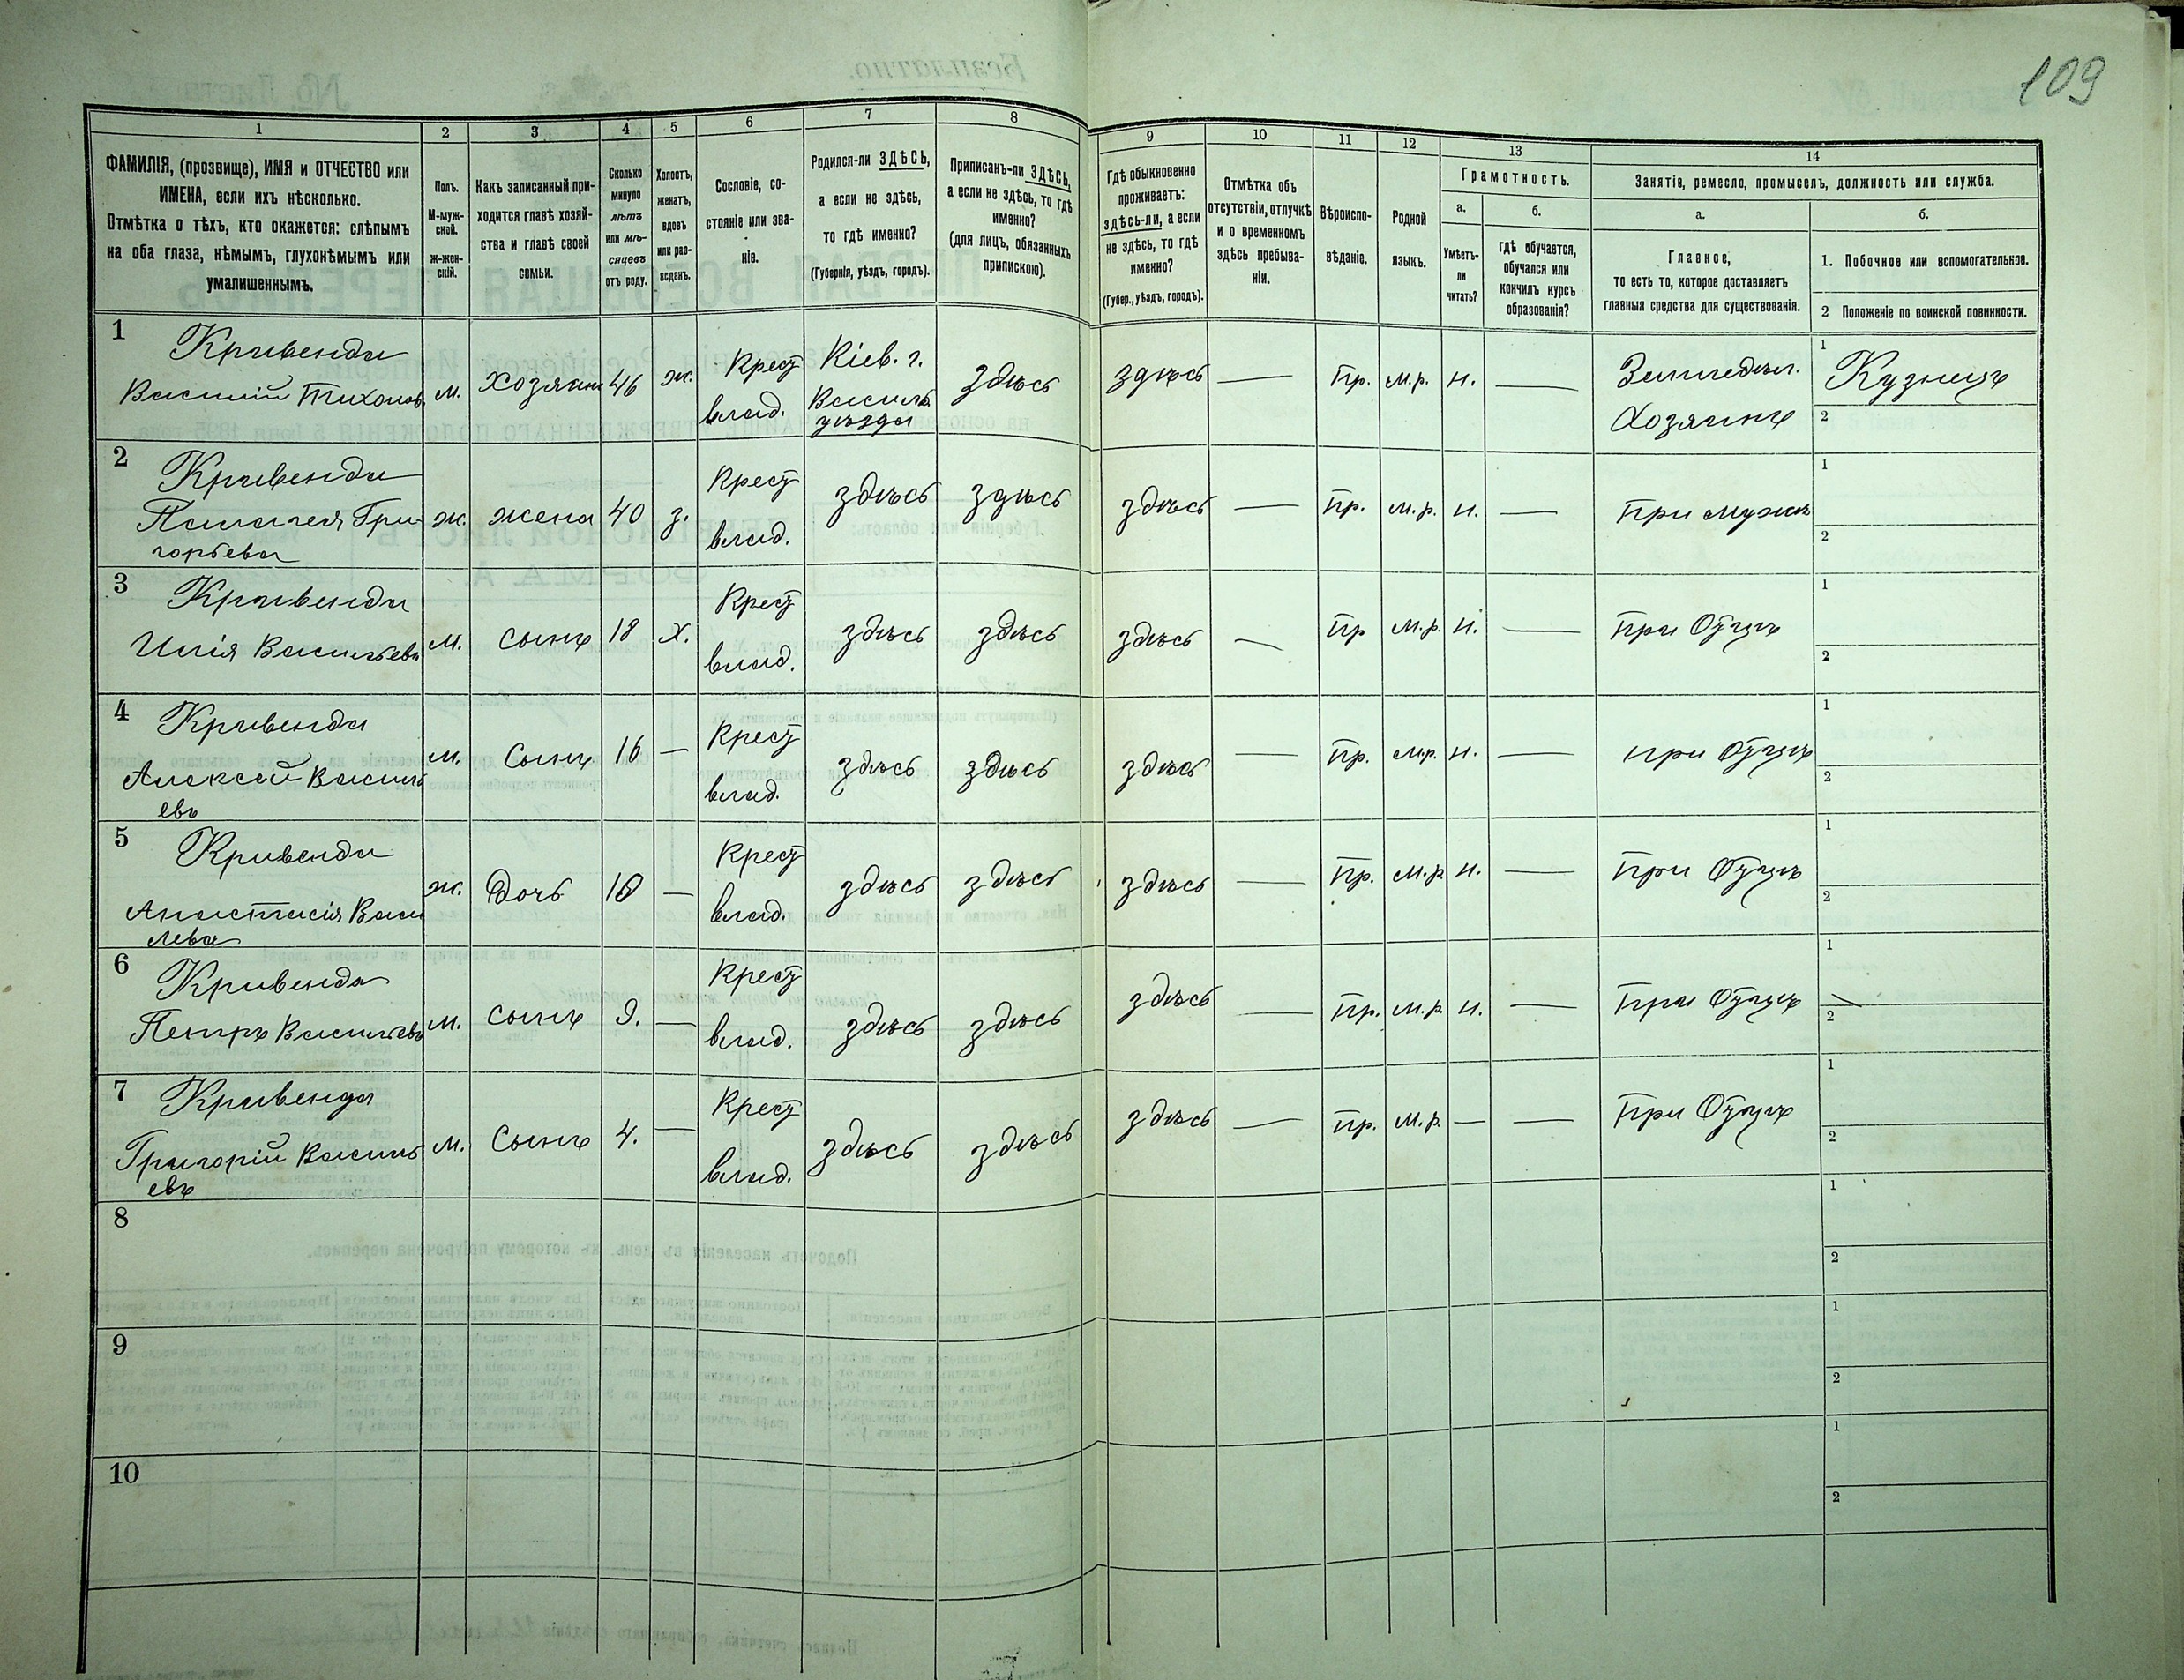 109
1
2
3
4
5
6
7
8
9
10
11
12
13
14
ФАМИЛІЯ, (прозвище), ИМЯ и ОТЧЕСТВО или
ИМЕНА, если ихъ нѣсколько.
Отмѣтка о тѣхъ, кто окажется: слѣпымъ
на оба глаза, нѣмымъ, глухонѣмымъ или
умалишеннымъ.
Полъ.
М-муж-
ской.
ж-жен-
скій.
Какъ записанный при-
ходится главѣ хозяй-
ства и главѣ своей
семьи.
Сколько
минуло
лѣтъ
или мѣ-
сяцевъ
отъ роду.
Холостъ,
женатъ,
вдовъ
или раз-
веденъ.
Сословіе, со-
стояніе или зва-
ніе.
Родился-ли ЗДѢСЬ,
а если не здѣсь,
то гдѣ именно?
(Губернія, уѣздъ, городъ).
Приписанъ-ли ЗДѢСЬ,
а если не здѣсь, то гдѣ
именно?
(для лицъ, обязанныхъ
припискою).
Гдѣ обыкновенно
проживаетъ:
здѣсь-ли, а если
не здѣсь, то гдѣ
именно?
(Губер., уѣздъ, городъ).
Отмѣтка объ
отсутствіи, отлучкѣ
и о временномъ
здѣсь пребыва-
ніи.
Вѣроиспо-
вѣданіе.
Родной
языкъ.
Грамотность.
а.
Умѣетъ-
ли
читать?
б.
гдѣ обучается,
обучался или
кончилъ курсъ
образованія?
Занятіе, ремесло, промыселъ, должность или служба.
а.
Главное,
то есть то, которое доставляетъ
главныя средства для существованія.
б.
1. Побочное или вспомогательное.
2 Положеніе по воинской повинности.
1
Кривенда
Василій Тихонов.
м.
хозяинъ
46
ж.
Крест
влад.
Кіев. г.
Василь.
уѣзда
здѣсь
здѣсь
—
Пр.
м.р.
н.
—
Земледѣл.
Хозяинъ
1
Кузнецъ
2
2
Кривенда
Палагея Гри-
горьева
ж.
жена
40
з.
Крест
влад.
здѣсь
здѣсь
здѣсь
—
Пр.
м.р.
н.
—
При мужѣ
1
2
3
Кривенда
Илія Васильевъ
м.
сынъ
18
х.
Крест
влад.
здѣсь
здѣсь
здѣсь
—
Пр
м.р.
н.
—
при Отцѣ
1
2
4
Кривенда
Алексей Василь
евъ
м.
Сынъ
16
—
Крест
влад.
здѣсь
здѣсь
здѣсь
—
Пр.
м.р.
н.
—
при Отцѣ
1
2
5
Кривенда
Анастасія Васи
лева
ж.
Дочь
10
—
Крест
влад.
здѣсь
здѣсь
здѣсь
—
Пр.
м.р.
н.
—
При Отцѣ
1
2
6
Кривенда
Петръ Васильевъ
м.
сынъ
9.
—
Крест
влад.
здѣсь
здѣсь
здѣсь
—
Пр.
м.р.
н.
—
При Отцѣ
1
2
7
Кривенда
Григорій Василь
евъ
м.
Сынъ
4.
—
Крест
влад.
здѣсь
здѣсь
здѣсь
—
пр.
м.р.
—
—
При Отцѣ
1
2
8
1
2
9
1
2
10
1
2